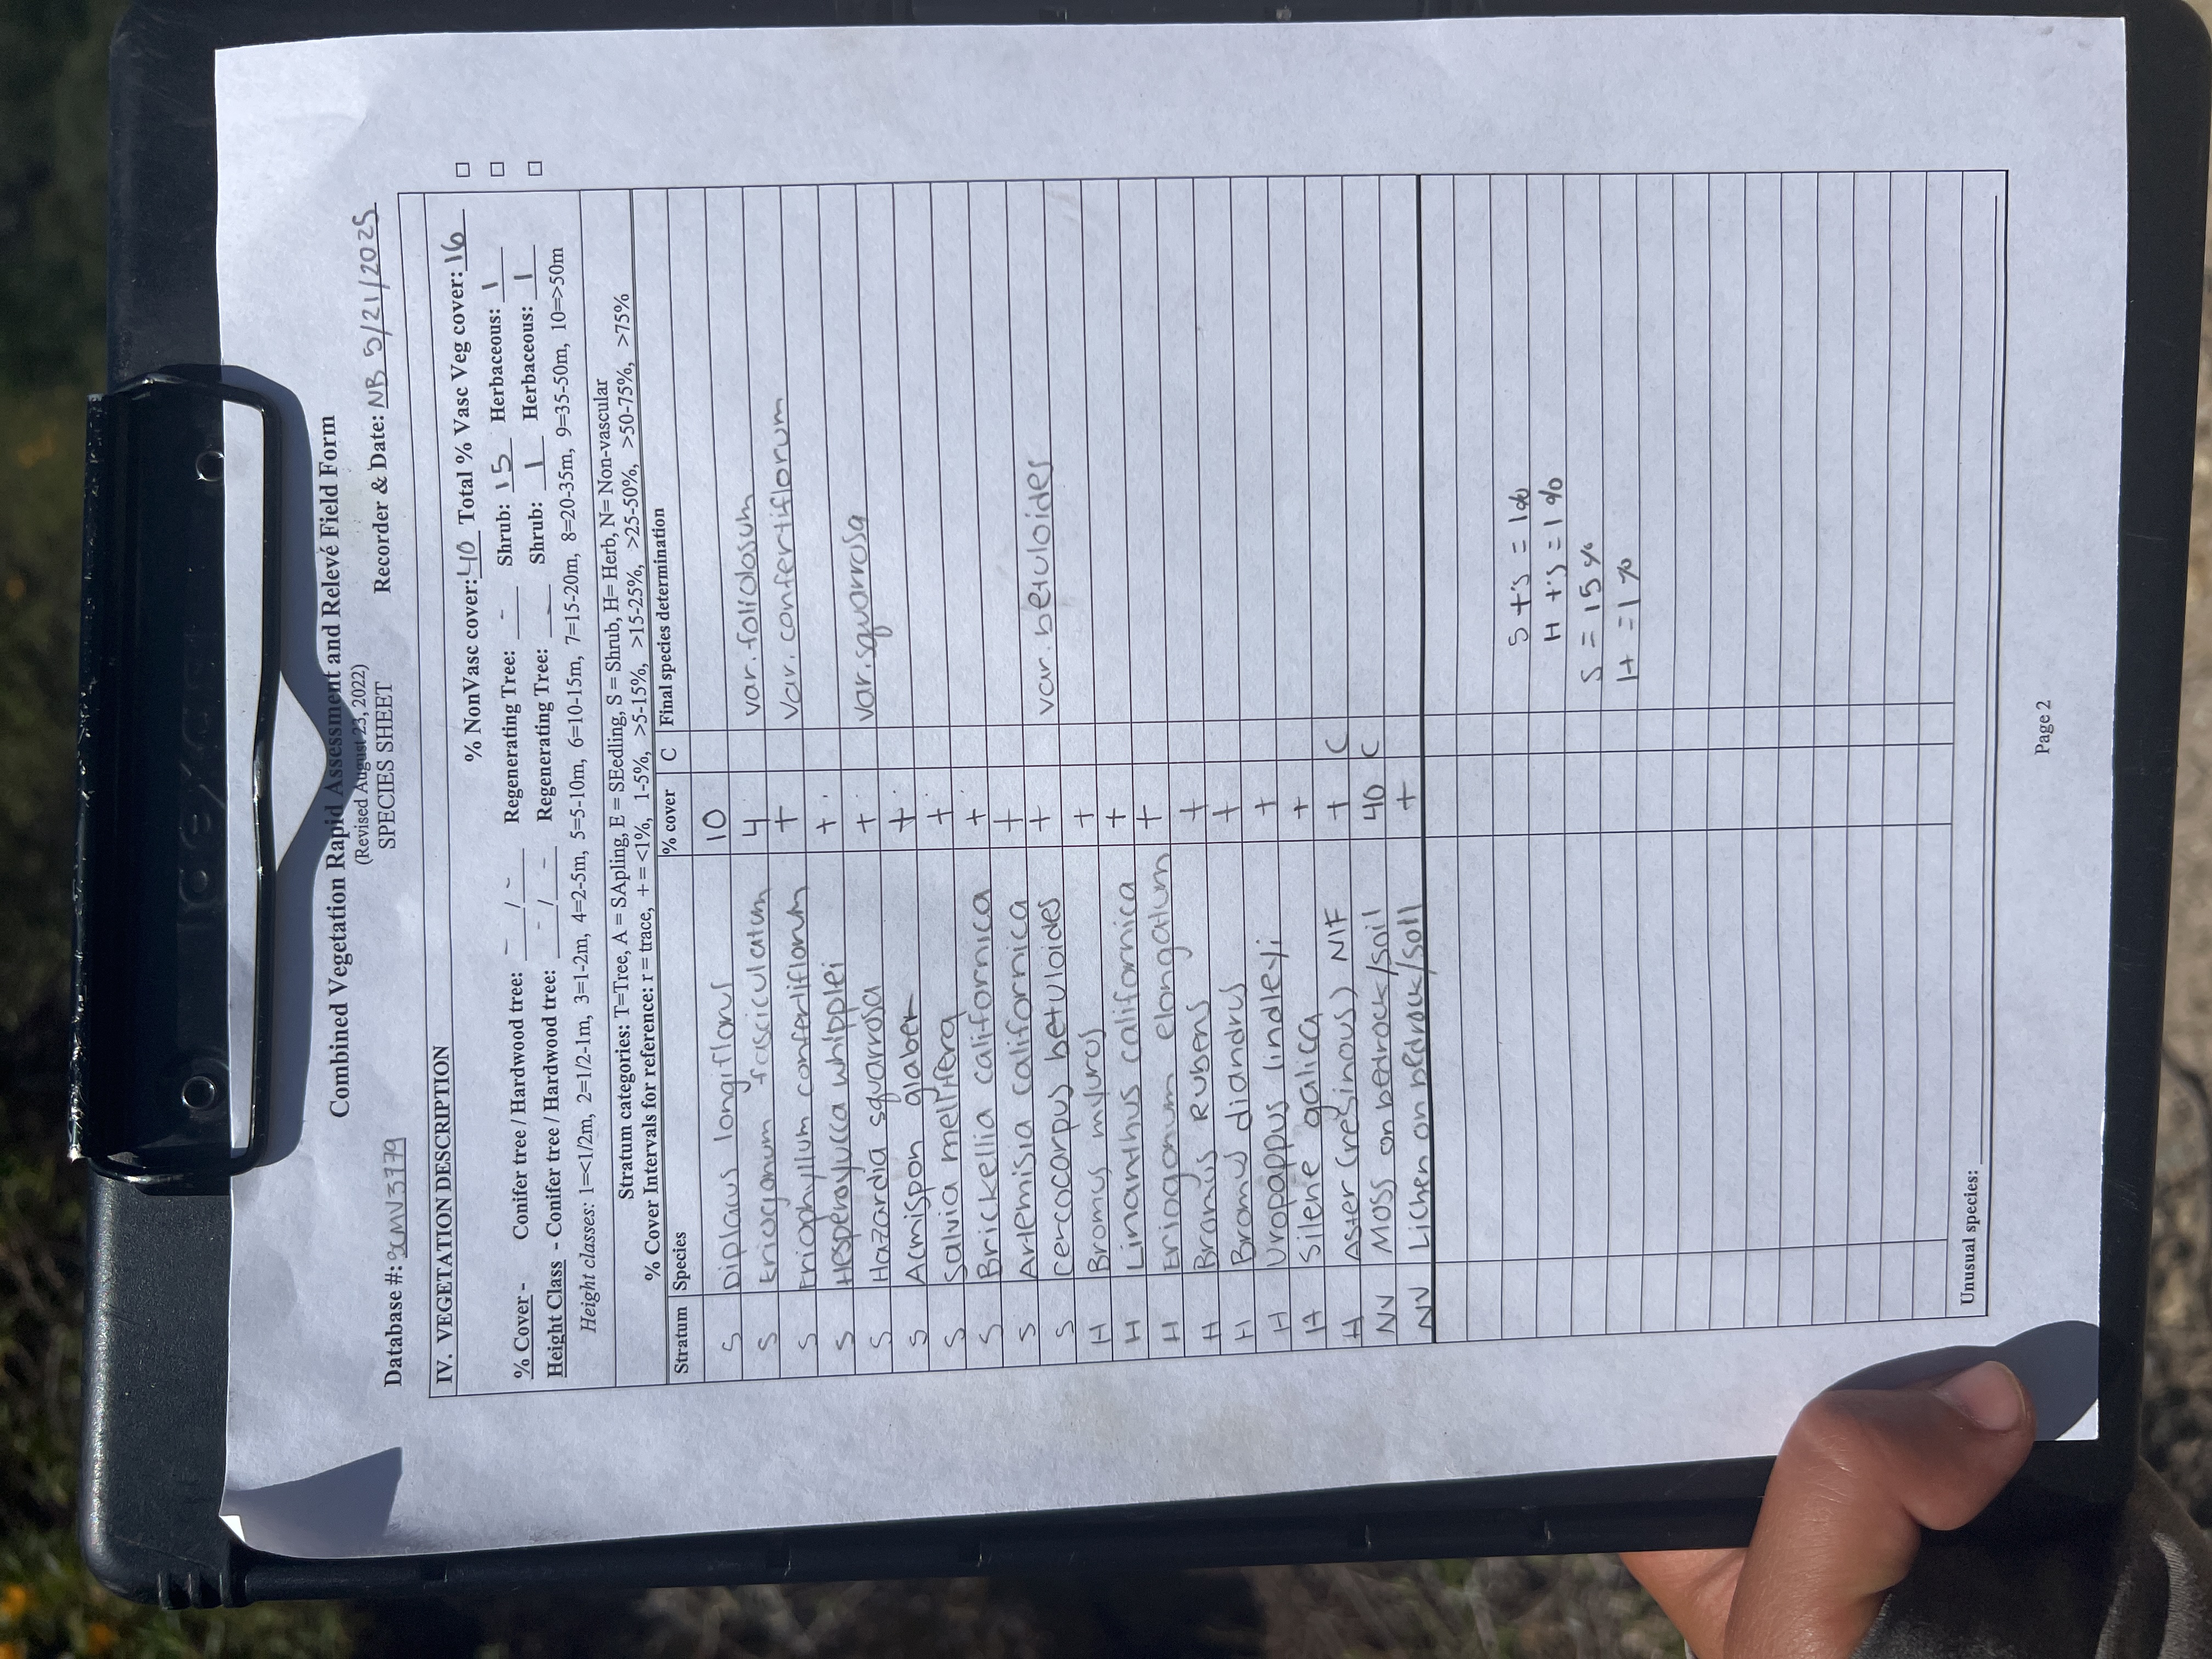 Combined Vegetation Rapid Assessment and Relevé Field Form
(Revised August 23, 2022)
SPECIES SHEET
Database #: SCMV3779 Recorder & Date: NB 5/21/2025
IV. VEGETATION DESCRIPTION
% NonVasc cover: 40 Total % Vasc Veg cover: 16 □
% Cover - Conifer tree / Hardwood tree: - / - Regenerating Tree: - Shrub: 15 Herbaceous: 1 □
Height Class - Conifer tree / Hardwood tree: - / - Regenerating Tree: - Shrub: 1 Herbaceous: 1 □
Height classes: 1=<1/2m, 2=1/2-1m, 3=1-2m, 4=2-5m, 5=5-10m, 6=10-15m, 7=15-20m, 8=20-35m, 9=35-50m, 10=>50m
Stratum categories: T=Tree, A = SApling, E = SEedling, S = Shrub, H= Herb, N= Non-vascular
% Cover Intervals for reference: r = trace, + = <1%, 1-5%, >5-15%, >15-25%, >25-50%, >50-75%, >75%
Stratum Species % cover C Final species determination
S Diplacus longiflorus 10
S Eriogonum fasciculatum 4 var. foliolosum
S Eriophyllum confertiflorum + var. confertiflorum
S Hesperoyucca whipplei +
S Hazardia squarrosa + var. squarrosa
S Acmispon glaber +
S Salvia mellifera +
S Brickellia californica +
S Artemisia californica +
S Cercocarpus betuloides + var. betuloides
H Bromus myuros +
H Linanthus californica +
H Eriogonum elongatum +
H Bromus rubens +
H Bromus diandrus +
H Uropappus lindleyi +
H Silene galica +
H Aster (resinous) NIF + C
NV Moss on bedrock/soil 40 C
NV Lichen on bedrock/soil +
S +'s = 1%
H +'s = 1%
S = 15%
H = 1%
Unusual species:
Page 2